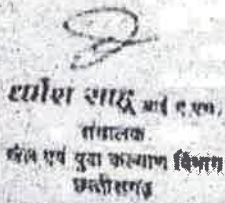 धर्मेश साहू आई.ए.एस.
संचालक
खेल एवं युवा कल्याण विभाग
छत्तीसगढ़